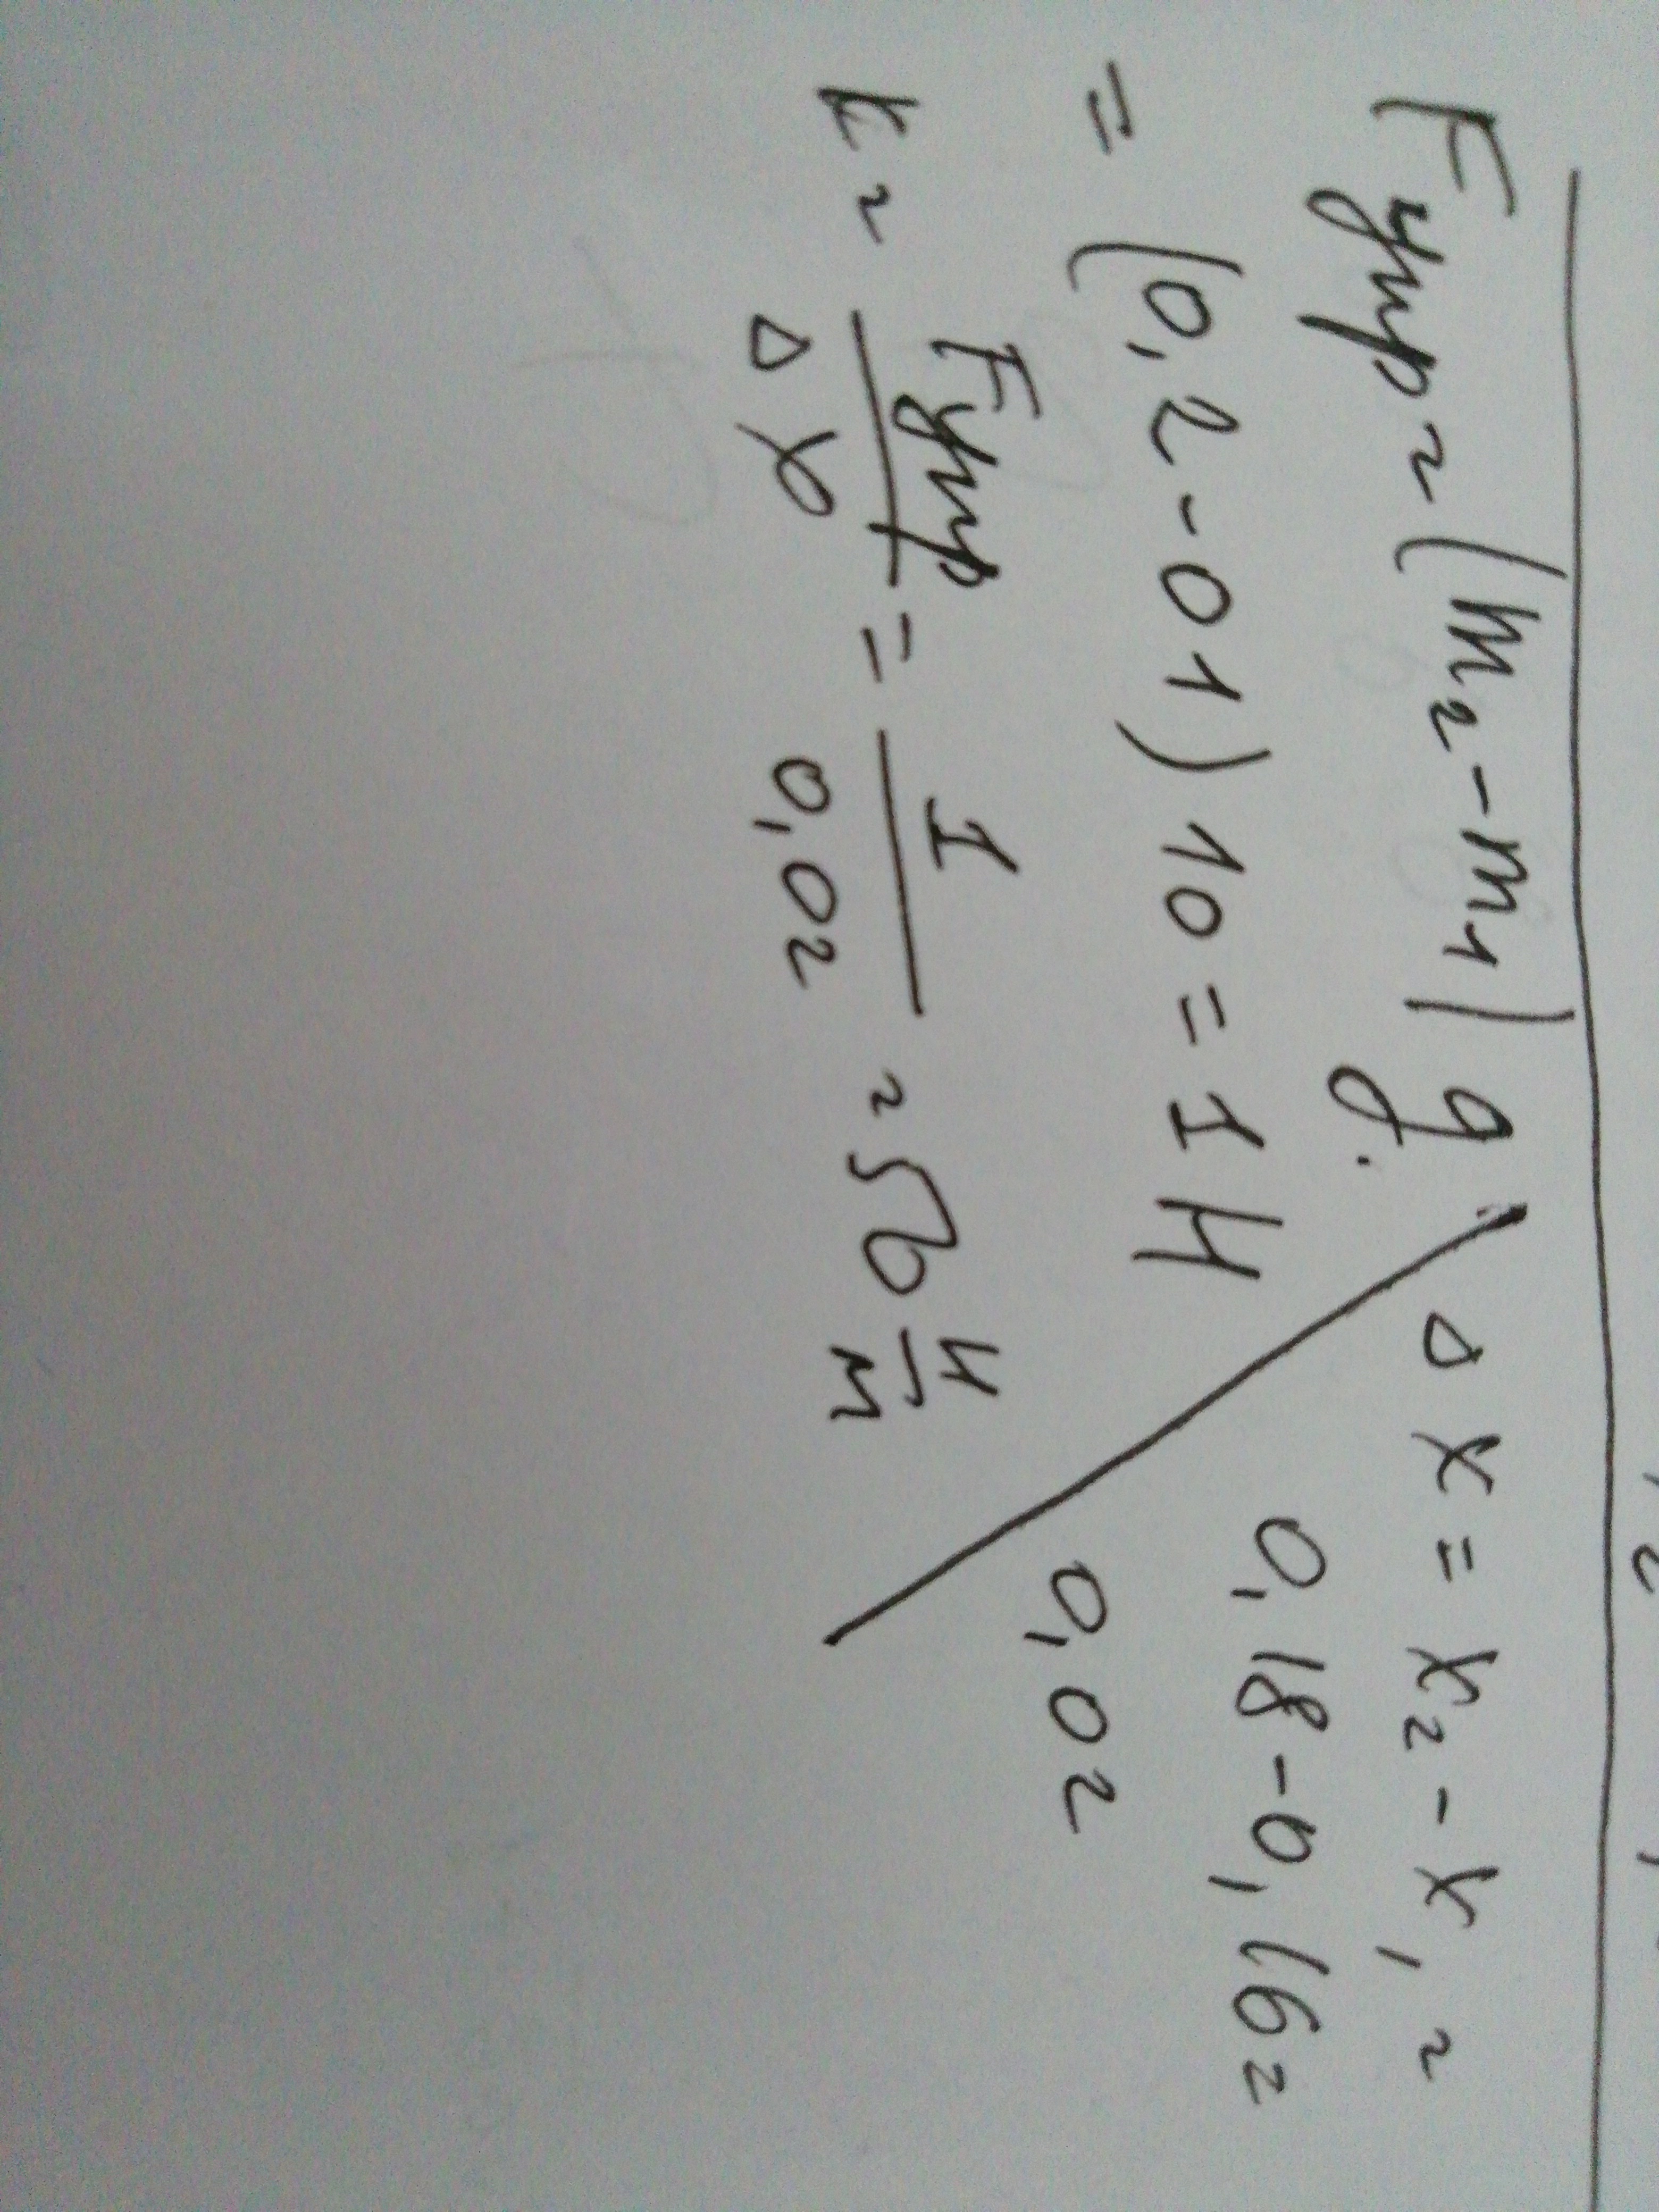 Fупр = (m₂ - m₁) g
= (0,2 - 01) 10 = 1 Н
k = Fупр / Δx = 1 / 0,02 = 50 Н/м
Δx = x₂ - x₁ =
0,18 - 0,16 =
0,02